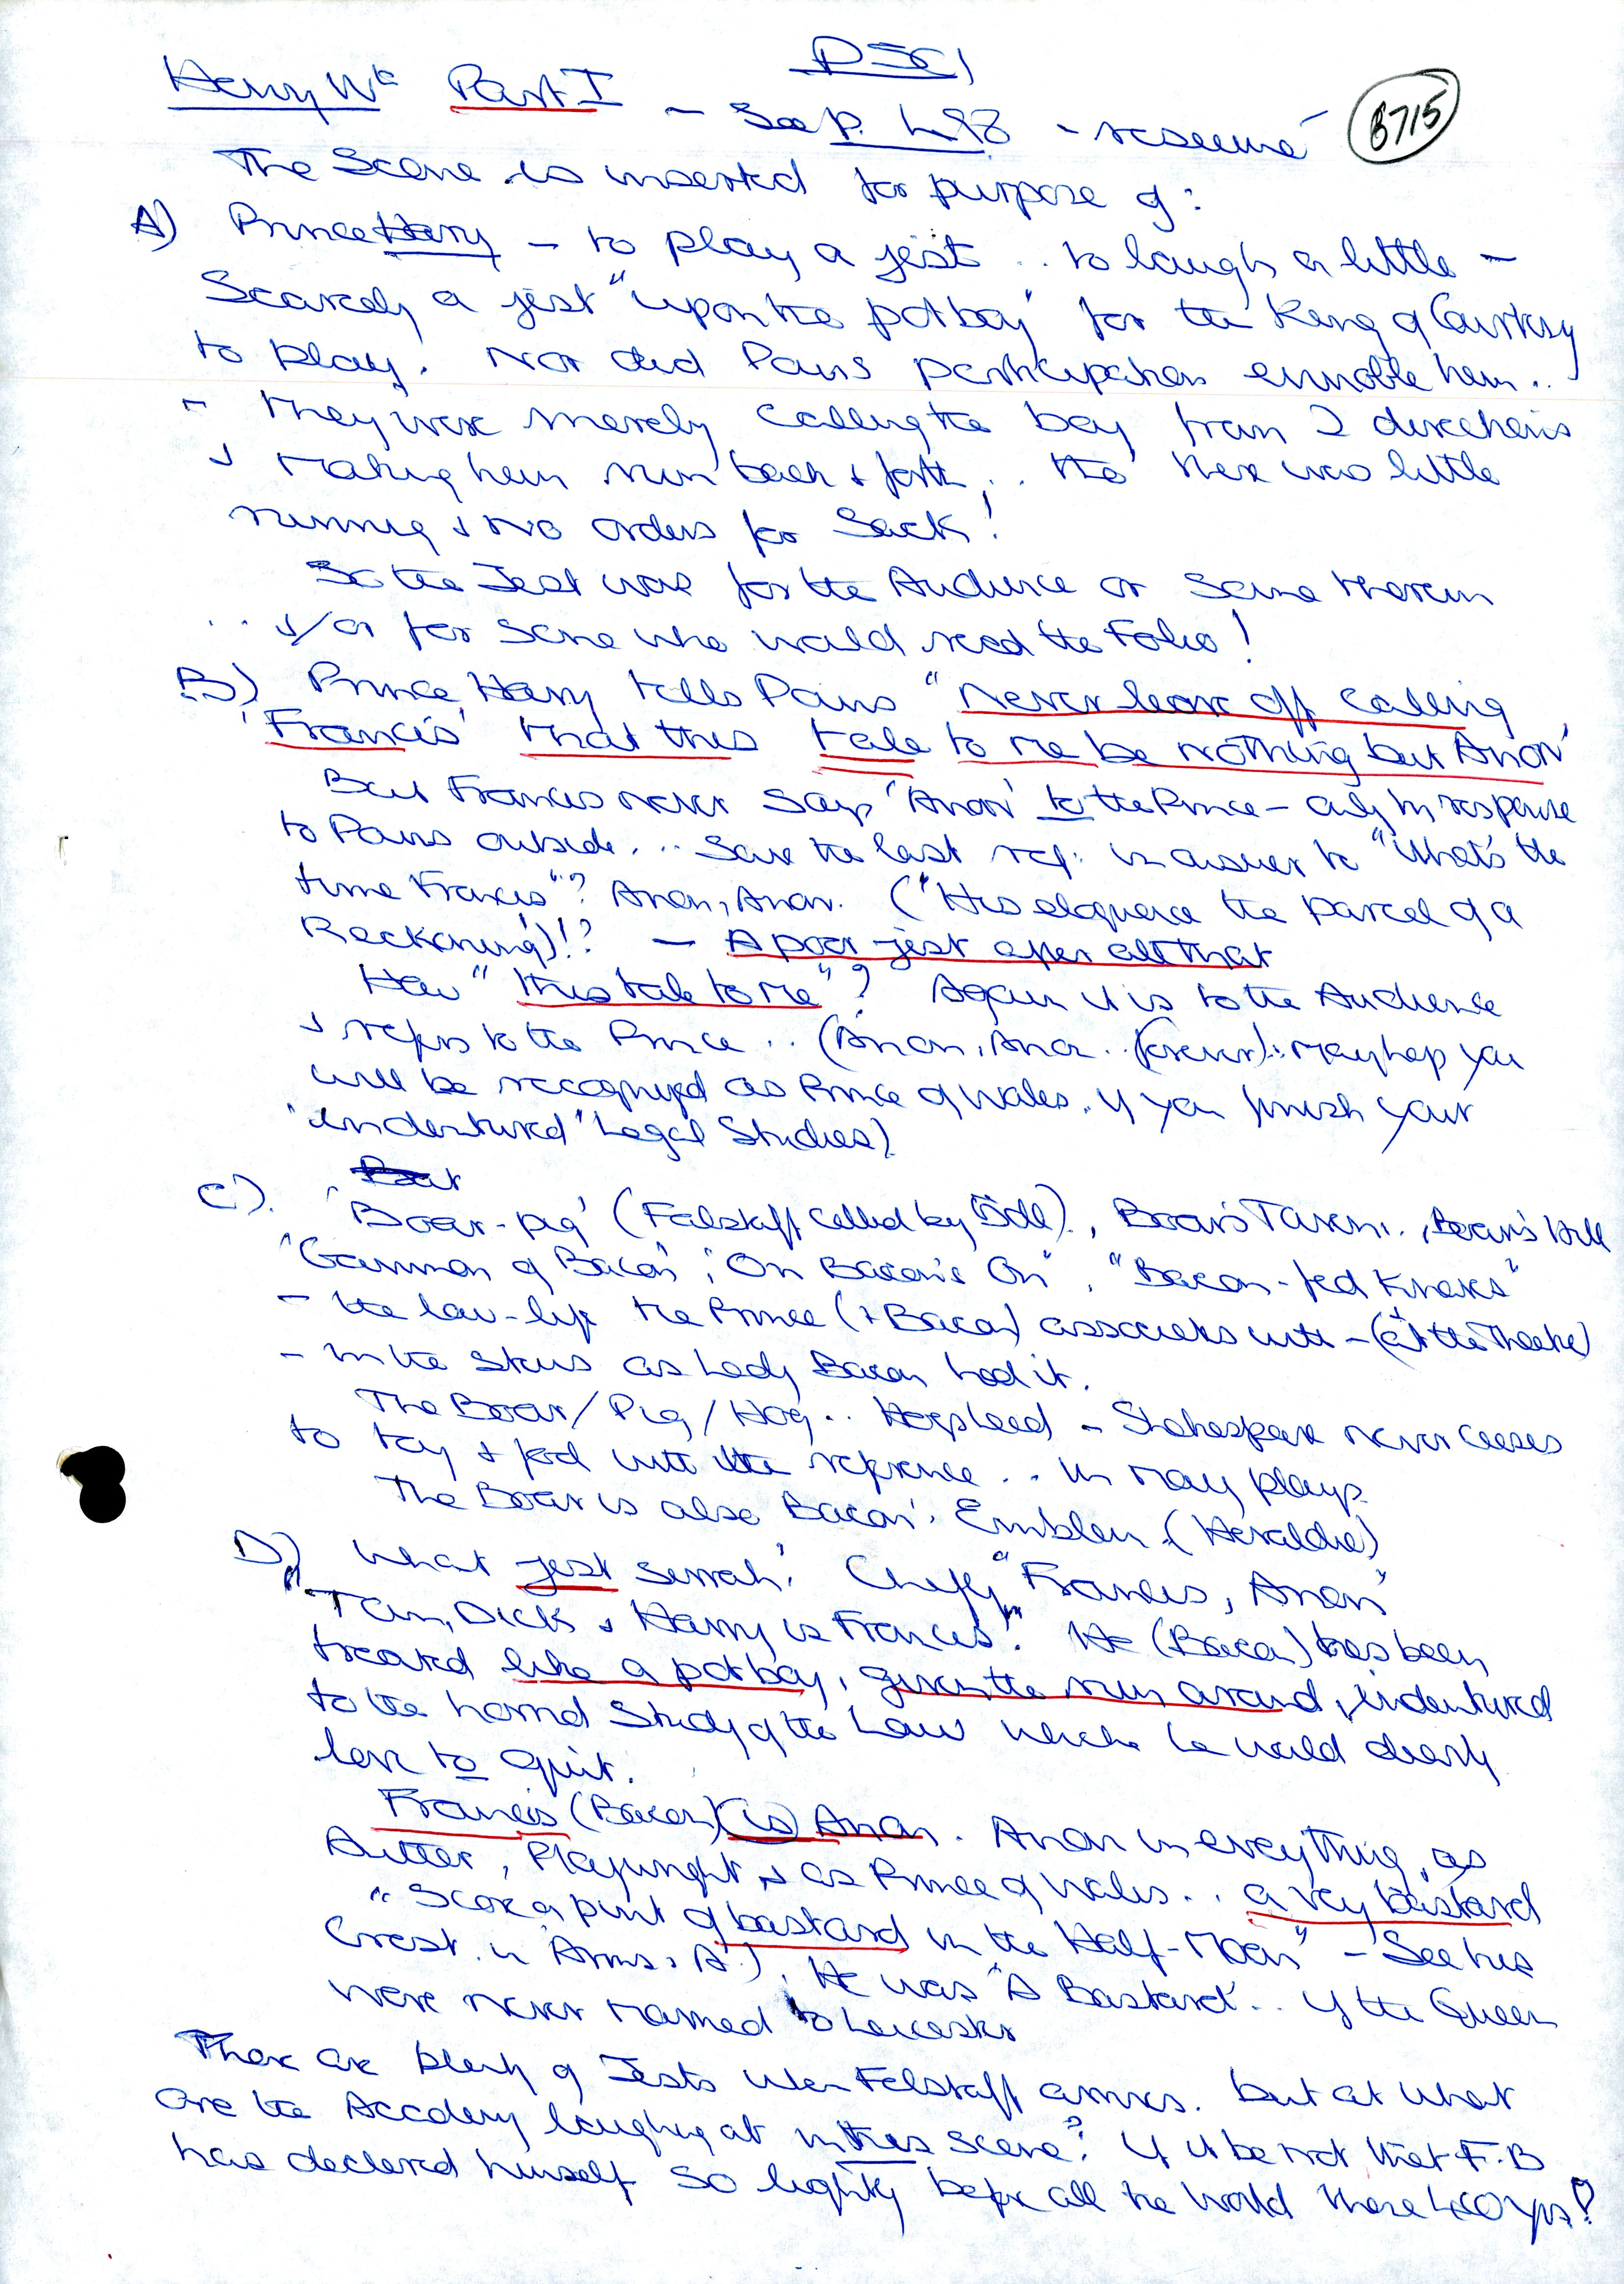 Henry IV Part I - See p. L98 - resumé
B715
The Scene is inserted for purpose of:
A) Prince Harry - to play a jest .. to laugh a little -
Scarcely a jest "upon the potboy" for the King of Courtesy
to play. Nor did Poins participation ennoble him..
- they were merely calling the boy from 2 directions
& making him run back & forth, .. tho' there was little
running & no orders for Sack!
So the Jest was for the Audience or some therein
... &/or for some who would read the Folio!
B) Prince Harry tells Poins "Never leave off calling
'Francis' that this tale to me be nothing but Anon'
But Francis never says 'Anon' to the Prince - only in response
to Poins outside... Save the last ref: in answer to "What's the
time Francis"? Anon, Anon. ("His eloquence the parcel of a
Reckoning)!? - A poor jest after all that
How "this tale to me"? Again it is to the Audience
& refers to the Prince .. (Anon, Anon .. (forever): Mayhap you
will be recognized as Prince of Wales. if you finish your
'indentured' Legal Studies)
C). 'Boar-pig' (Falstaff called by Doll)., Boar's Tavern., Boar's Hill
"Gammon of Bacon"; "On Bacon's On", "Bacon-fed Knaves"
- the low-life the Prince (+ Bacon) associates with - (at the Theatre)
- in the stews as Lady Bacon had it.
The Boar/Pig/Hog .. Hogshead - Shakespeare never ceases
to toy & feed with the reference ... in many plays.
The Boar is also Bacon's Emblem (Heraldic)
D) What jest sirrah! Chiefly "Francis, Anon"
"Tom, Dick & Harry is Francis". He (Bacon) has been
treated like a potboy, given the run around, indentured
to the horrid Study of the Law which he would dearly
love to quit.
Francis (Bacon) (is) Anon. Anon in everything, as
Author, Playwright, & as Prince of Wales.. a very bastard
"Score a pint of bastard in the Half-Moon" - See his
Crest in Arms, A.). He was "A Bastard".. if the Queen
were never married to Leicester
There are plenty of Jests when Falstaff arrives. but at what
are the Academy laughing at in this scene? If it be not that F.B
has declared himself so lightly before all the World these 400 yrs!